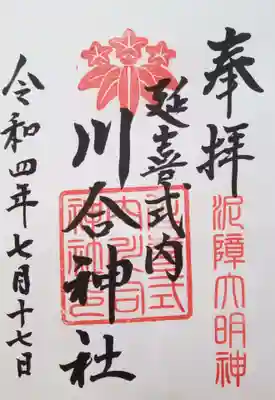 奉拝
泥障大明神
延喜式内
川合神社
令和四年七月十七日